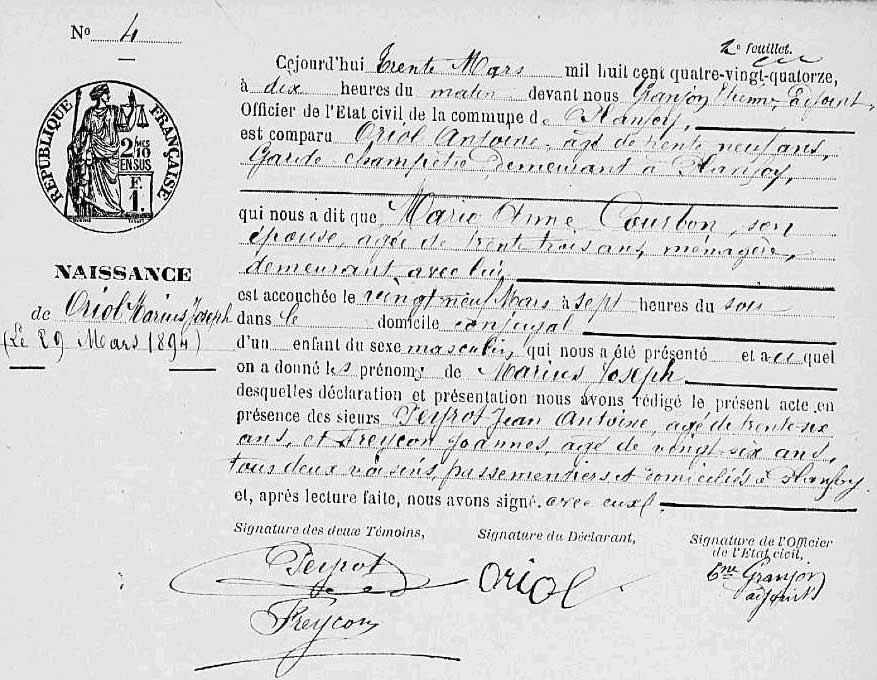 N° 4
2e feuillet.
Cejourd'hui trente Mars mil huit cent quatre-vingt-quatorze,
à dix heures du matin devant nous Granjon Etienne, Adjoint
Officier de l'Etat civil de la commune de Planfoy,
est comparu Oriol Antoine, âgé de trente neuf ans,
Garde-champêtre demeurant à Planfoy,
qui nous a dit que Marie Anne Courbon, son
épouse, agée de trente trois ans, ménagère,
demeurant avec lui
est accouchée le vingt neuf Mars à sept heures du soir
dans le domicile conjugal
d'un enfant du sexe masculin, qui nous a été présenté et auquel
on a donné les prénoms de Marius Joseph
desquelles déclaration et présentation nous avons rédigé le présent acte en
présence des sieurs Peyrot Jean Antoine, agé de trente-six
ans, et Freycon Joannes, agé de vingt-six ans,
tous deux voisins, passementiers et domiciliés à Planfoy.
et, après lecture faite, nous avons signé avec eux.
RÉPUBLIQUE FRANÇAISE
2/MES
10
EN SUS
F.
1.
NAISSANCE
de Oriol Marius Joseph
(Le 29 Mars 1894)
Signature des deux Témoins,
Signature du Déclarant,
Signature de l'Officier
de l'Etat civil,
Peyrot
Freycon
oriol
Ene Granjon
adjoint